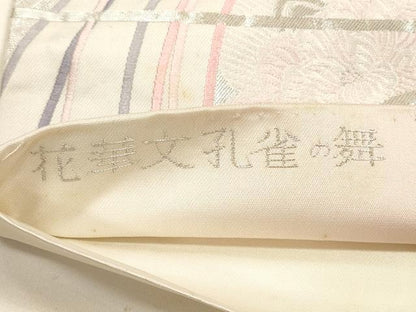 花華文孔雀の舞